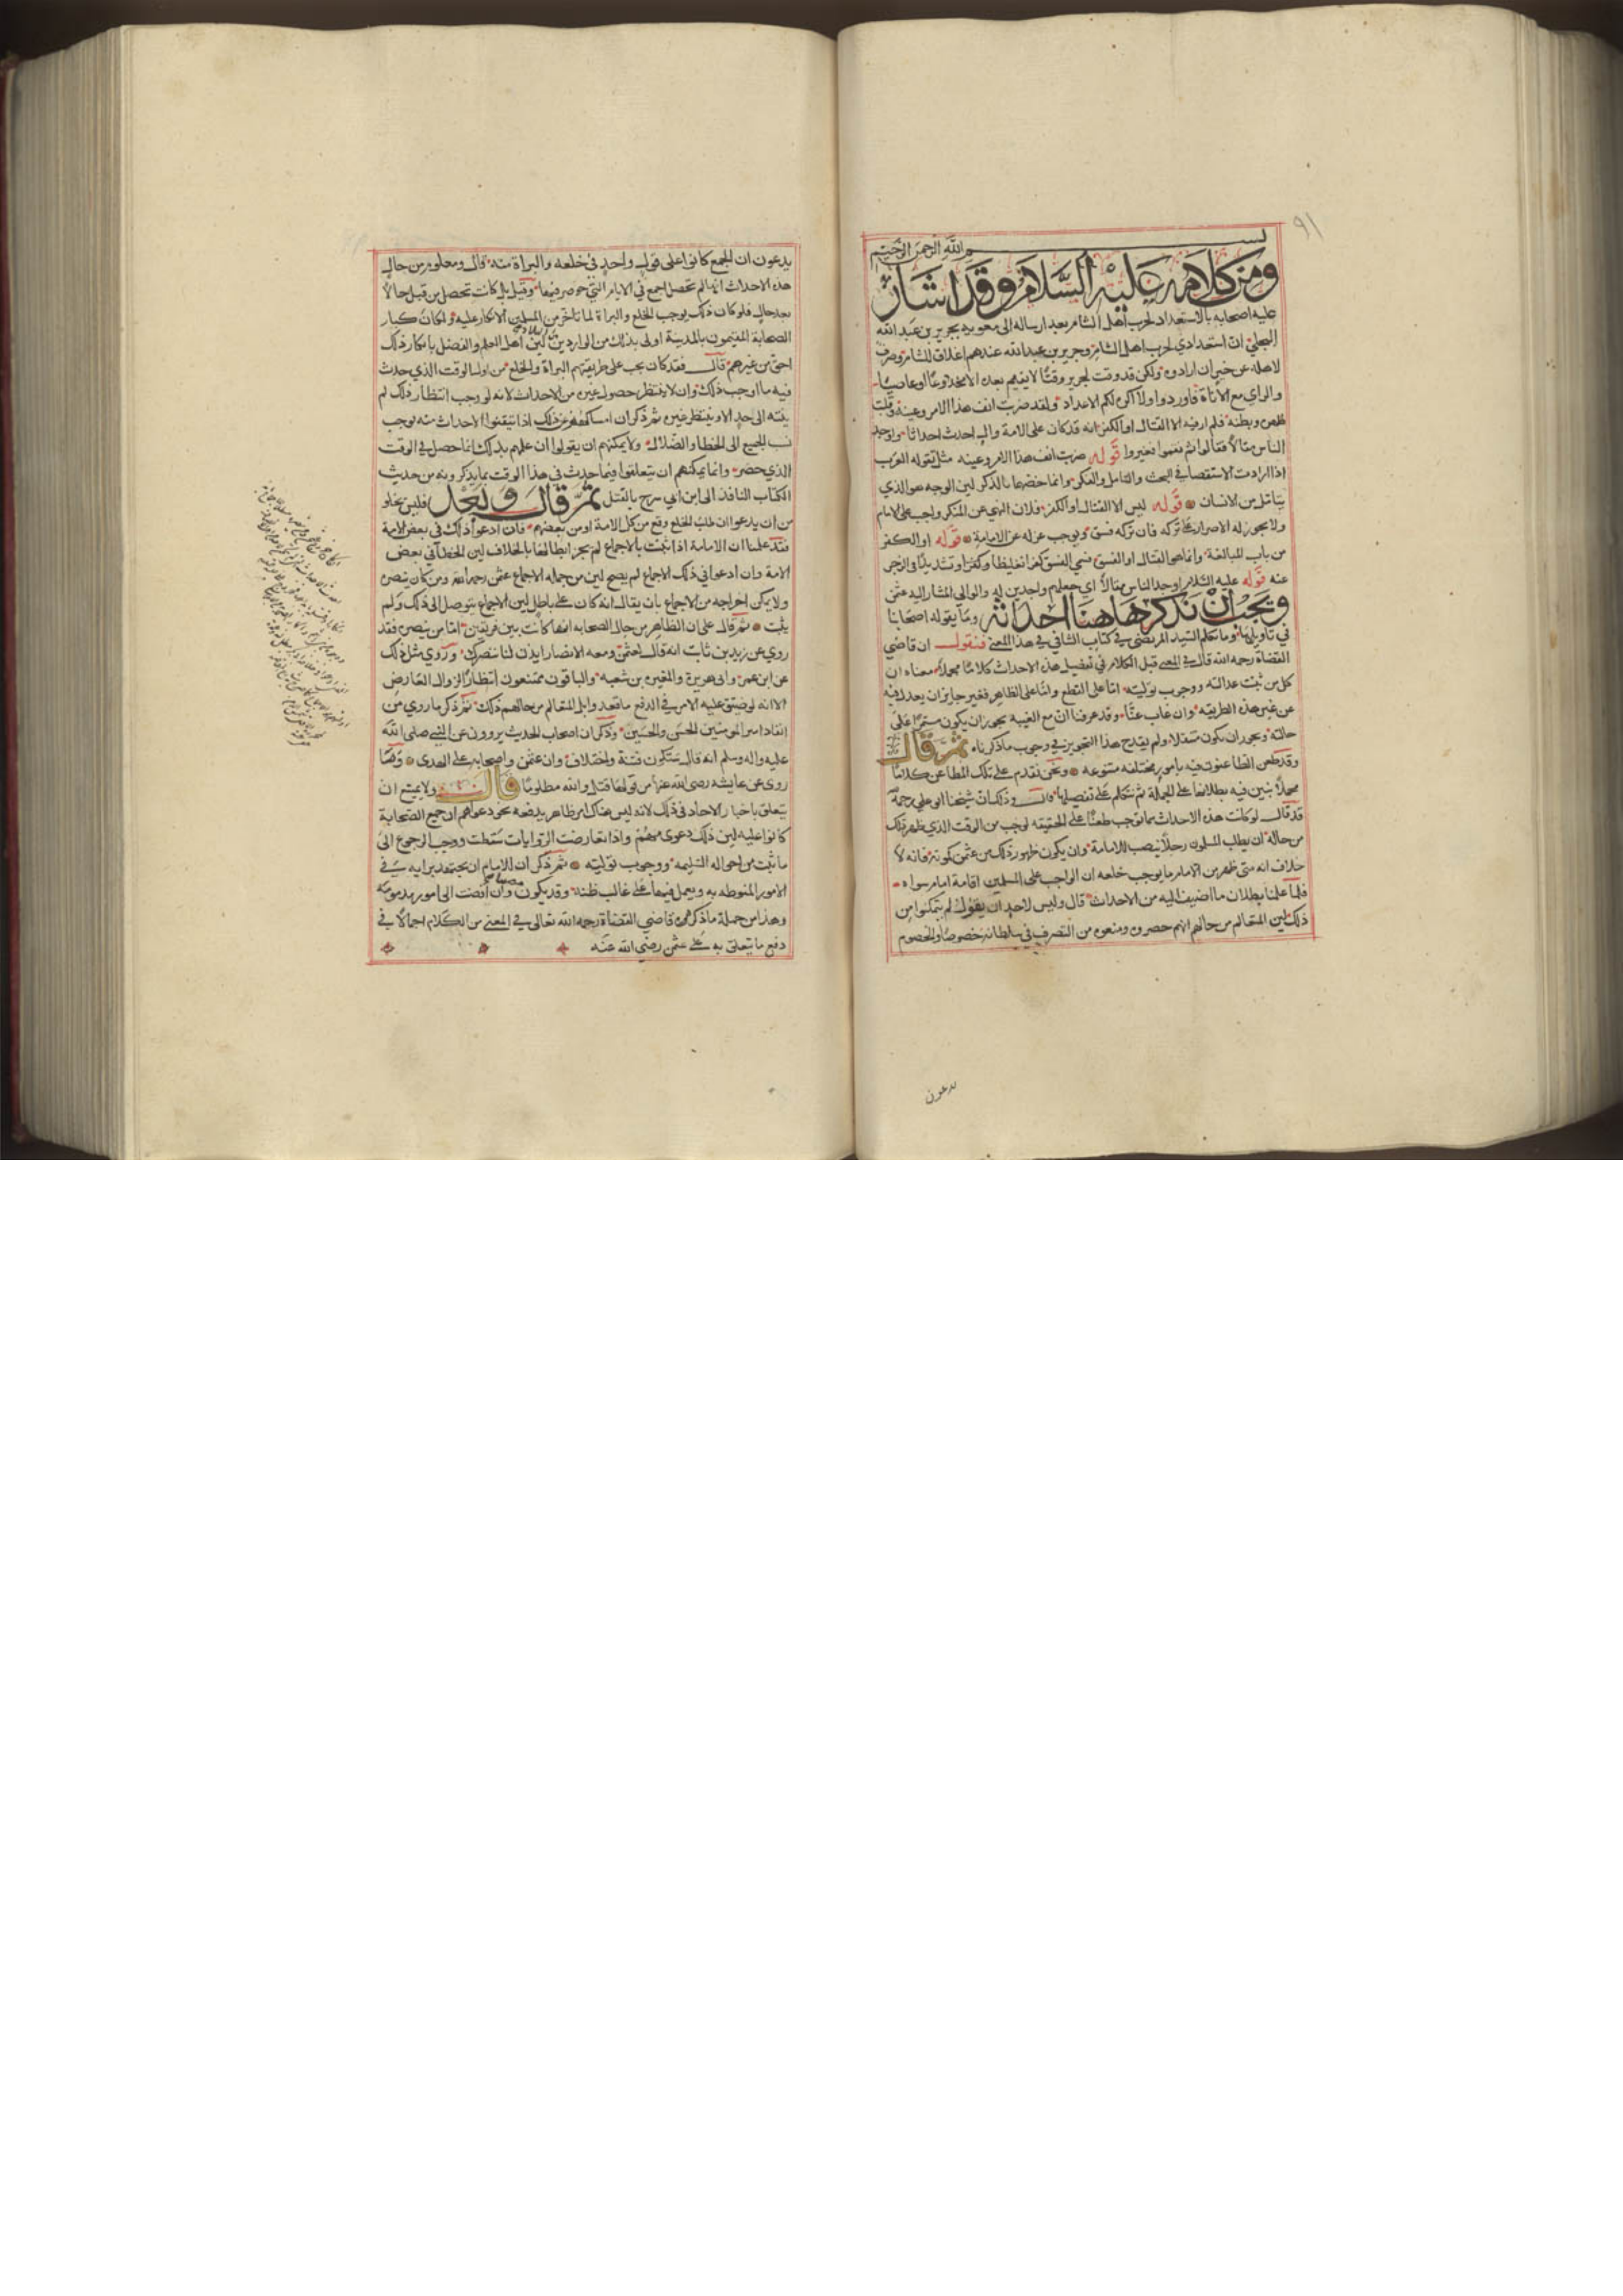 ٩١
بسم الله الرحمن الرحيم
ومن كلامه عليه السلام وقد اشار
عليه اصحابه بالاستعداد لحرب اهل الشام بعد ارساله الى معوية بجرير بن عبد الله
البجلي ان استعدادي لحرب اهل الشام وجرير بن عبد الله عندهم اغلاق للشام وصرف
لاهله عن خير ان ارادوه ولكن قد وقت لجرير وقتا لا يقيم بعده الا مخدوعا او عاصيا
والراي مع الاناة فاوردوا ولا اكره لكم الاعداد ولقد ضربت انف هذا الامر وعينه وقلبت
ظهره وبطنه فلم ار فيه الا القتال او الكفر انه قد كان على الامة وال احدث احداثا واوجد
الناس مقالا فقالوا ثم نقموا فغيروا قوله ضربت انف هذا الامر وعينه مثل تقوله العرب
اذا ارادت الاستقصا في البحث والتامل والفكر وانما خصهما بالذكر لان الوجه هو الذي
يتامل من الانسان قوله ليس الا القتال او الكفر فلان النهي عن المنكر واجب على الامام
ولا يجوز له الاصرار على تركه فان تركه فسق ويوجب عزله عن الامامة قوله او الكفر
من باب المبالغة وانما هو القتال او الفسق فسمي الفسق كفرا تغليظا وكفرا وتشديدا في الزجر
عنه قوله عليه السلام اوجد الناس مقالا اي جعلهم واجدين له والوالي المشار اليه عثمن
ويجب ان نذكر هاهنا احداثه وما يقوله اصحابنا
في تاويلها وما تكلم السيد المرتضى في كتاب الشافي في هذا المعنى فنقول ان قاضي
القضاة رحمه الله قال في المغني قبل الكلام في تفصيل هذه الاحداث كلاما مجملا معناه ان
كل من ثبتت عدالته ووجوب توليته اما على القطع واما على الظاهر فغير جايز ان يعدل فيه
عن غير هذه الطريقه وان غاب عنا وقد عرفنا انه مع الغيبة يجوز ان يكون مستمرا على
حالته ويجوز ان يكون متنقلا ولم يقدح هذا التجويز في وجوب ما ذكرناه ثم قال
وقد طعن الطاعنون فيه بامور مختلفه متنوعه ونحن نقدم على تلك المطاعن كلاما
مجملا يبين فيه بطلانها على الجملة ثم نتكلم على تفصيلها قال وذلك ان شيخنا ابو علي رحمه
قد قال لو كانت هذه الاحداث مما توجب طعنا على الحقيقه لوجب من الوقت الذي ظهر ذلك
من حاله ان يطلب المسلمون رجلا ينصب للامامة وان يكون ظهور ذلك من عثمن كموته فانه لا
خلاف انه متى ظهر من الامام ما يوجب خلعه ان الواجب على المسلمين اقامة امام سواه
فلما علمنا بطلان ما اضيف اليه من الاحداث قال وليس لاحد ان يقول لم يتمكنوا من
ذلك لان المتعالم من حالهم انهم حصروه ومنعوه من التصرف في سلطانه خصوصا والخصوم
يدعون
يدعون ان الجمع كانوا على قول واحد في خلعه والبراة منه قال ومعلوم من حال
هذه الاحداث انها لم تحصل اجمع في الايام التي حوصر فيها وقتل بل كانت تحصل من قبل حالا
بعد حال فلو كان ذلك يوجب الخلع والبراة لما تاخر من المسلمين الانكار عليه ولكان كبار
الصحابة المقيمون بالمدينة اولى بذلك من الواردين من البلاد لان اهل العلم والفضل بانكار ذلك
احق من غيرهم قال فقد كان يجب على طريقتهم البراة والخلع من اول الوقت الذي حدث
فيه ما اوجب ذلك وان لا ينتظر حصول غيره من الاحداث لانه لو وجب انتظار ذلك لم
ينته الى حد الا وينتظر غيره ثم ذكر ان امساكهم عن ذلك اذا تيقنوا الاحداث منه يوجب
نسب الجميع الى الخطا والضلال ولا يمكنهم ان يقولوا ان علمهم بذلك انما حصل في الوقت
الذي حضر وانما يمكنهم ان يتعلقوا فيما حدث في هذا الوقت بما يذكرونه من حديث
الكتاب النافذ الى ابن ابي سرح بالقتل ثم قال ولعل فليس يخلو
من ان يدعوا ان طلب الخلع وقع من كل الامة او من بعضهم فان ادعوا ذلك في بعض الامة
فقد علمنا ان الامامة اذا ثبتت بالاجماع لم يجز ابطالها بالخلاف لان الخطا في بعض
الامة وان ادعوا في ذلك الاجماع لم يصح لان من جمله الاجماع عثمن رحمه الله ومن كان ينصره
ولا يمكن اخراجه من الاجماع بان يقال انه كان على باطل لان الاجماع يتوصل الى ذلك ولم
يثبت ثم قال على ان الظاهر من حال الصحابه انها كانت بين فريقين اما من نصره فقد
روي عن زيد بن ثابت انه قال لعثمن ومعه الانصار ايذن لنا ننصرك وروي مثل ذلك
عن ابن عمر وابي هريرة والمغيره بن شعبه والباقون ممتنعون انتظارا لزوال العارض
الا انه لو ضيق عليه الامر في الدفع ما قعدوا بل المتعالم من حالهم ذلك ثم ذكر ما روي من
انفاذ امير المومنين الحسن والحسين وذكر ان اصحاب الحديث يروون عن النبي صلى الله
عليه واله وسلم انه قال ستكون فتنة واختلاف وان عثمن واصحابه على الهدى وما
روي عن عايشه رضي الله عنها من قولها قتل والله مظلوما قال ولا يمتنع ان
يتعلق باخبار الاحاد في ذلك لانه ليس هناك امر ظاهر يدفعه نحو دعواهم ان جميع الصحابة
كانوا عليه لان ذلك دعوى منهم واذا تعارضت الروايات سقطت ووجب الرجوع الى
ما ثبت من احواله السليمه ووجوب توليته ثم ذكر ان للامام ان يجتهد برايه في
الامور المنوطه به ويعمل فيها على غالب ظنه وقد يكون مصيبا وان افضت الى امور مذمومة
وهذا من جملة ما ذكره قاضي القضاة رحمه الله تعالى في المغني من الكلام اجمالا في
دفع ما يتعلق به على عثمن رضي الله عنه